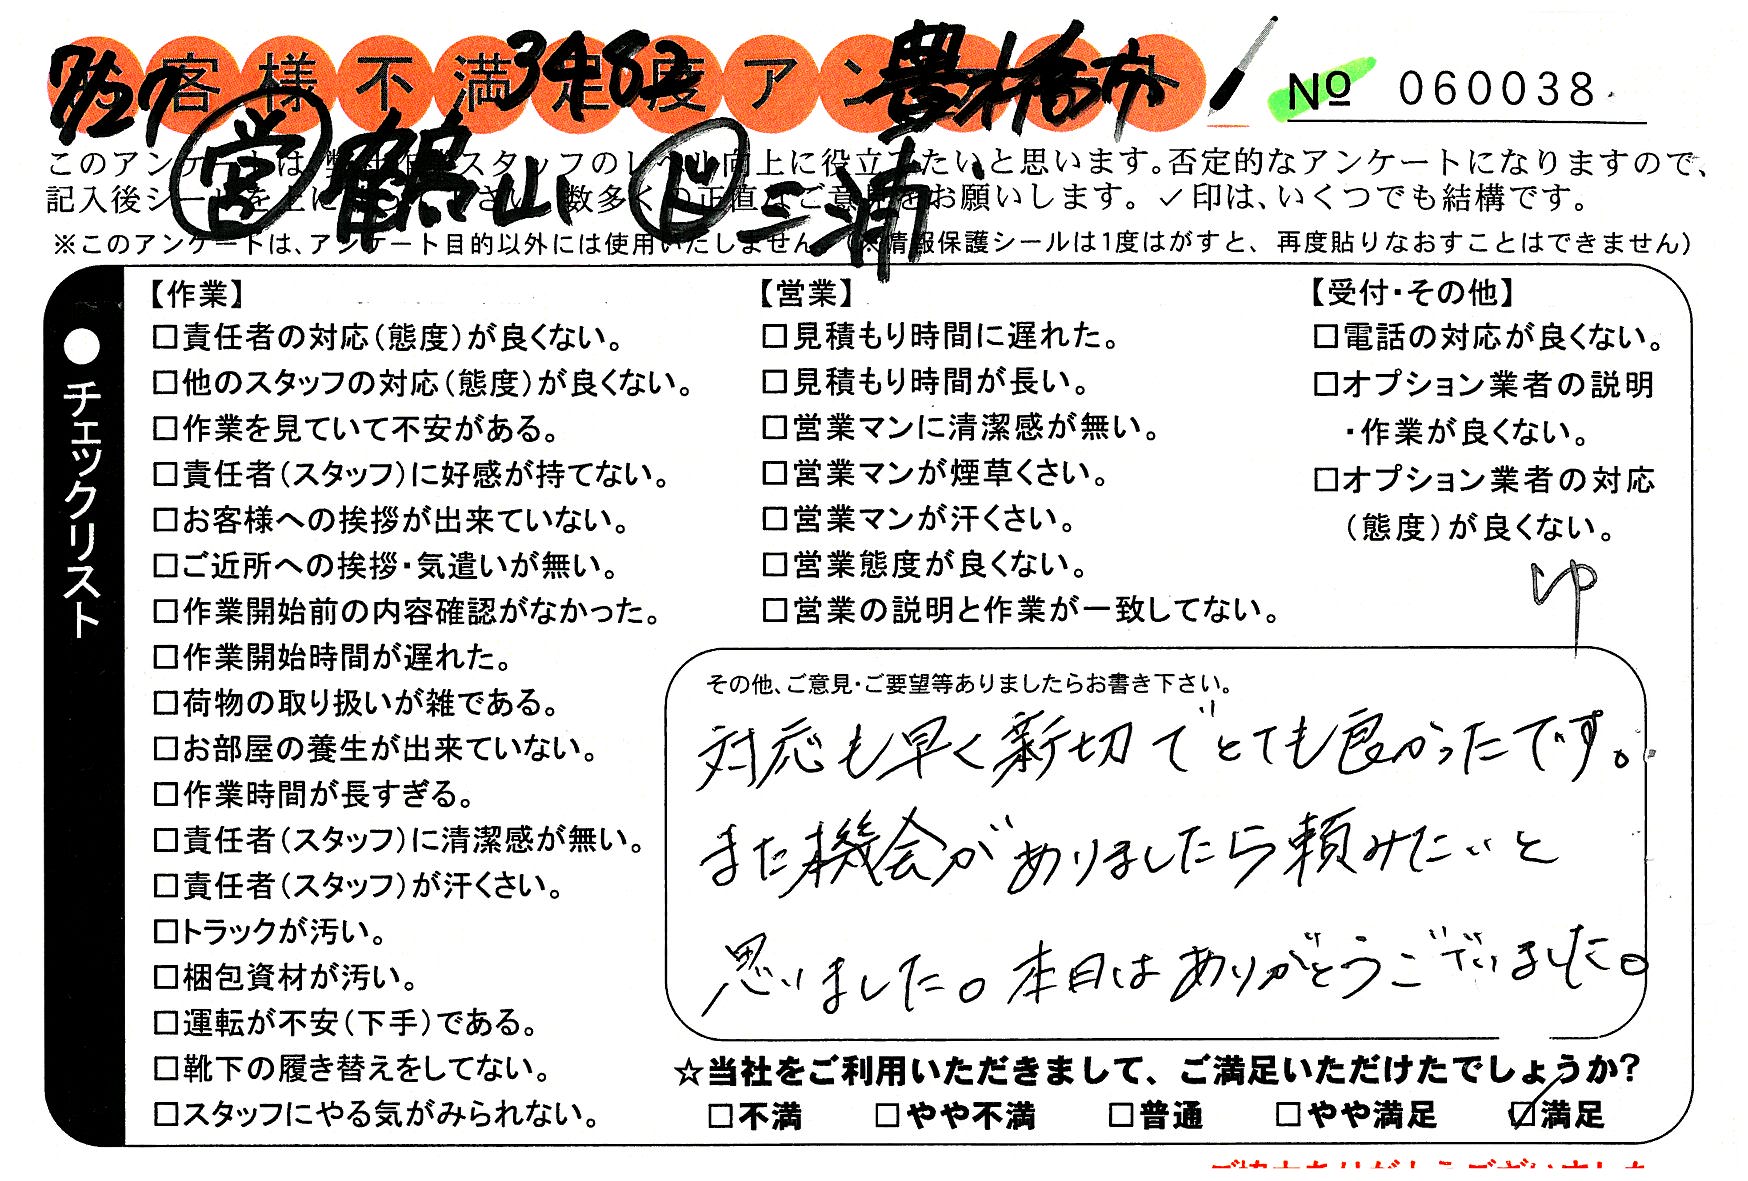 お客様不満足度アンケート
7/27 3482 豊橋市
No 060038
営 鶴山 ド 三浦
このアンケートは、弊社作業スタッフのレベル向上に役立てたいと思います。否定的なアンケートになりますので、
記入後シールを上に 数多くの正直なご意見をお願いします。✓印は、いくつでも結構です。
※このアンケートは、アンケート目的以外には使用いたしません。(※情報保護シールは1度はがすと、再度貼りなおすことはできません)
●チェックリスト
【作業】
□責任者の対応(態度)が良くない。
□他のスタッフの対応(態度)が良くない。
□作業を見ていて不安がある。
□責任者(スタッフ)に好感が持てない。
□お客様への挨拶が出来ていない。
□ご近所への挨拶・気遣いが無い。
□作業開始前の内容確認がなかった。
□作業開始時間が遅れた。
□荷物の取り扱いが雑である。
□お部屋の養生が出来ていない。
□作業時間が長すぎる。
□責任者(スタッフ)に清潔感が無い。
□責任者(スタッフ)が汗くさい。
□トラックが汚い。
□梱包資材が汚い。
□運転が不安(下手)である。
□靴下の履き替えをしてない。
□スタッフにやる気がみられない。
【営業】
□見積もり時間に遅れた。
□見積もり時間が長い。
□営業マンに清潔感が無い。
□営業マンが煙草くさい。
□営業マンが汗くさい。
□営業態度が良くない。
□営業の説明と作業が一致してない。
【受付・その他】
□電話の対応が良くない。
□オプション業者の説明
・作業が良くない。
□オプション業者の対応
(態度)が良くない。
ゆ
その他、ご意見・ご要望等ありましたらお書き下さい。
対応も早く親切でとても良かったです。
また機会がありましたら頼みたいと
思いました。本日はありがとうございました。
☆当社をご利用いただきまして、ご満足いただけたでしょうか?
□不満 □やや不満 □普通 □やや満足 ☑満足
ご協力ありがとうございました